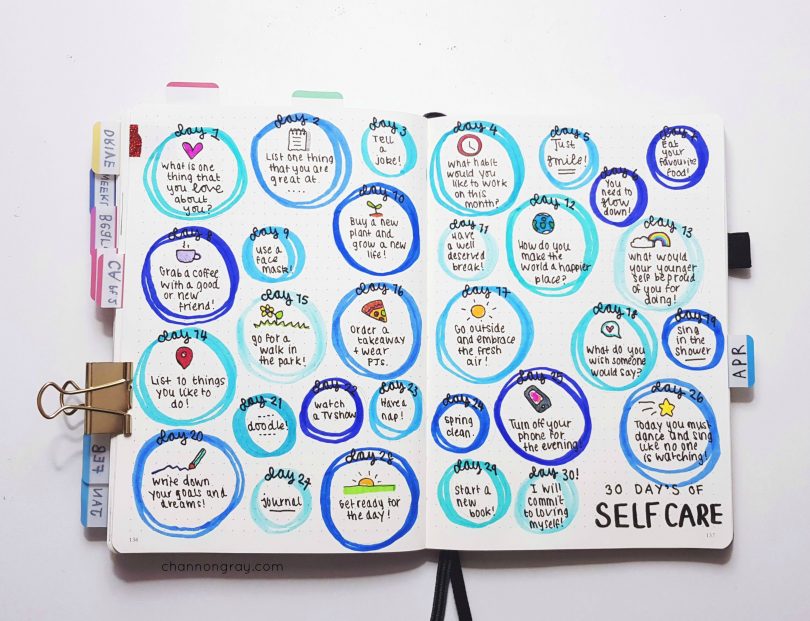 day 1
What is one
thing that
you love
about
you?
day 2
List one thing
that you are
great at
....
day 3
Tell
a
joke!
day 8
Grab a coffee
with a good
or new
friend!
day 9
use a
face
mask!
day 10
Buy a new
plant and
grow a new
life!
day 14
List 10 things
you like to
do!
day 15
go for a
walk in
the park!
day 16
Order a
takeaway
+ wear
PJs.
day 20
Write down
your goals and
dreams!
day 21
doodle!
day 22
watch
a TV show
day 23
Have a
nap!
day 27
journal
day 28
Get ready for
the day!
134
channongray.com
day 4
What habit
would you
like to work
on this
month?
day 5
Just
smile!
day 6
You
need to
slow
down!
day 7
Eat
your
favourite
food!
day 11
Have
a well
deserved
break!
day 12
How do you
make the
world a happier
place?
day 13
What would
your younger
self be proud
of you for
doing!
day 17
Go outside
and embrace
the fresh
air!
day 18
What do you
wish someone
would say?
day 19
Sing
in the
shower
day 24
Spring
clean.
day 25
Turn off your
phone for
the evening!
day 26
Today you must
dance and sing
like no one
is watching!
day 29
Start a
new
book!
day 30!
I will
commit
to loving
myself!
30 DAY'S OF
SELF CARE
DRIVE
APR